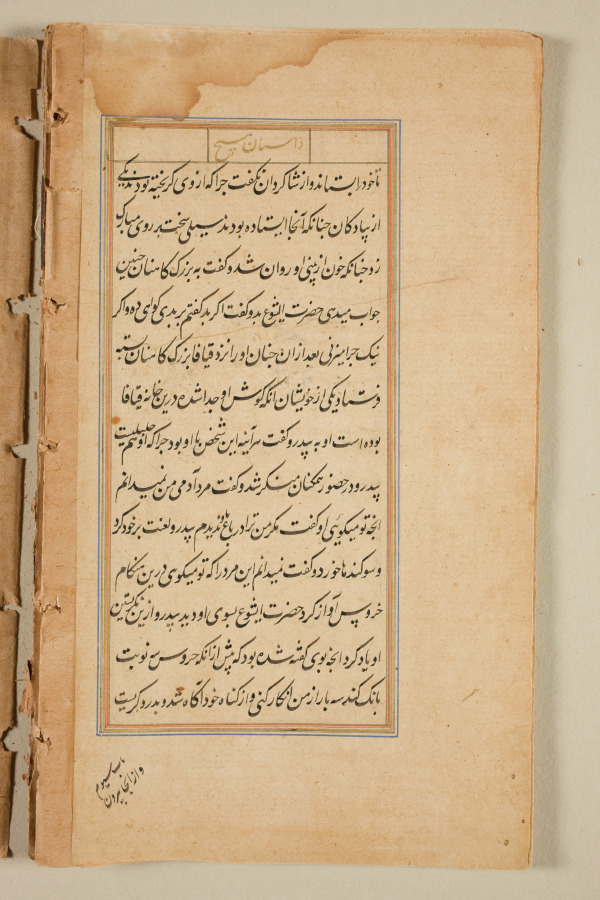 داستان مسیح
تا خود را بستاند و از شاکردان نکفت جرا که از وی کریخته بودند یکی
از پیادکان جنانکه آنجا ایستاده بودند سیلی سخت بر روی مبارک
زد جنانکه خون از بینی او روان شد و کفت به بزرک کاهنان جنین
جواب میدهی حضرت ایشوع بدو کفت اکر بد کفتم بر بدی کواهی ده و اکر
نیک جرا میزنی بعد از ان حنان او را نزد قیافا بزرک کاهنان بسته
فرستاد یکی از خویشان آنکه کوش او جدا شده درین خانه قیافا
بوده است او به پیدرو کفت هر آینه این شخص با او بود جرا که او هم جلیلیست
پیدرو در حضور همکنان منکر شد و کفت مرد آدمی من نمیدانم
انجه تو میکویی او کفت مکر من ترا در باغ با او ندیدم پیدرو لعنت بر خود کرد
و سوکندها خورد و کفت نمیدانم این مرد را که تو میکوی درین هنکام
خروس آواز کرد حضرت ایشوع بسوی او دید پیدرو ازین نکریستن
او یاد کرد انجه بوی کفته شده بود که پیش از انکه خروس سه نوبت
بانک کند سه بار از من انکار کنی و از کناه خود آکاه شد و بدرد کریست
و از انجا بیرون